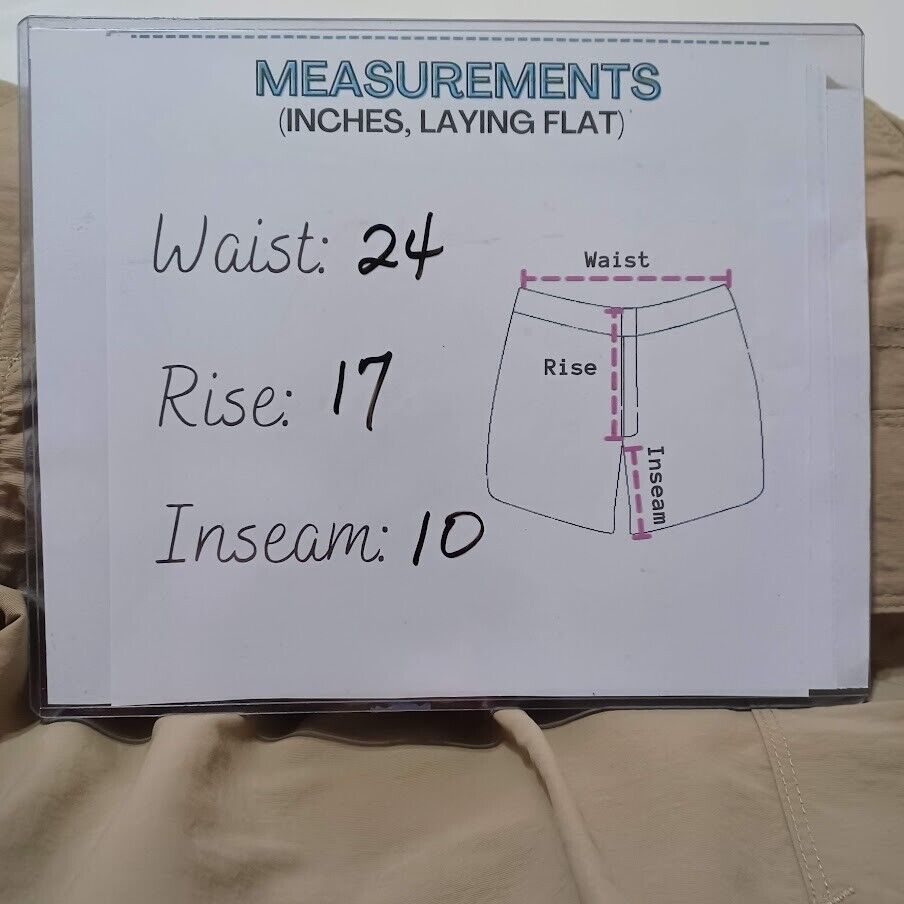 MEASUREMENTS
(INCHES, LAYING FLAT)
Waist: 24
Rise: 17
Inseam: 10
Waist
Rise
Inseam